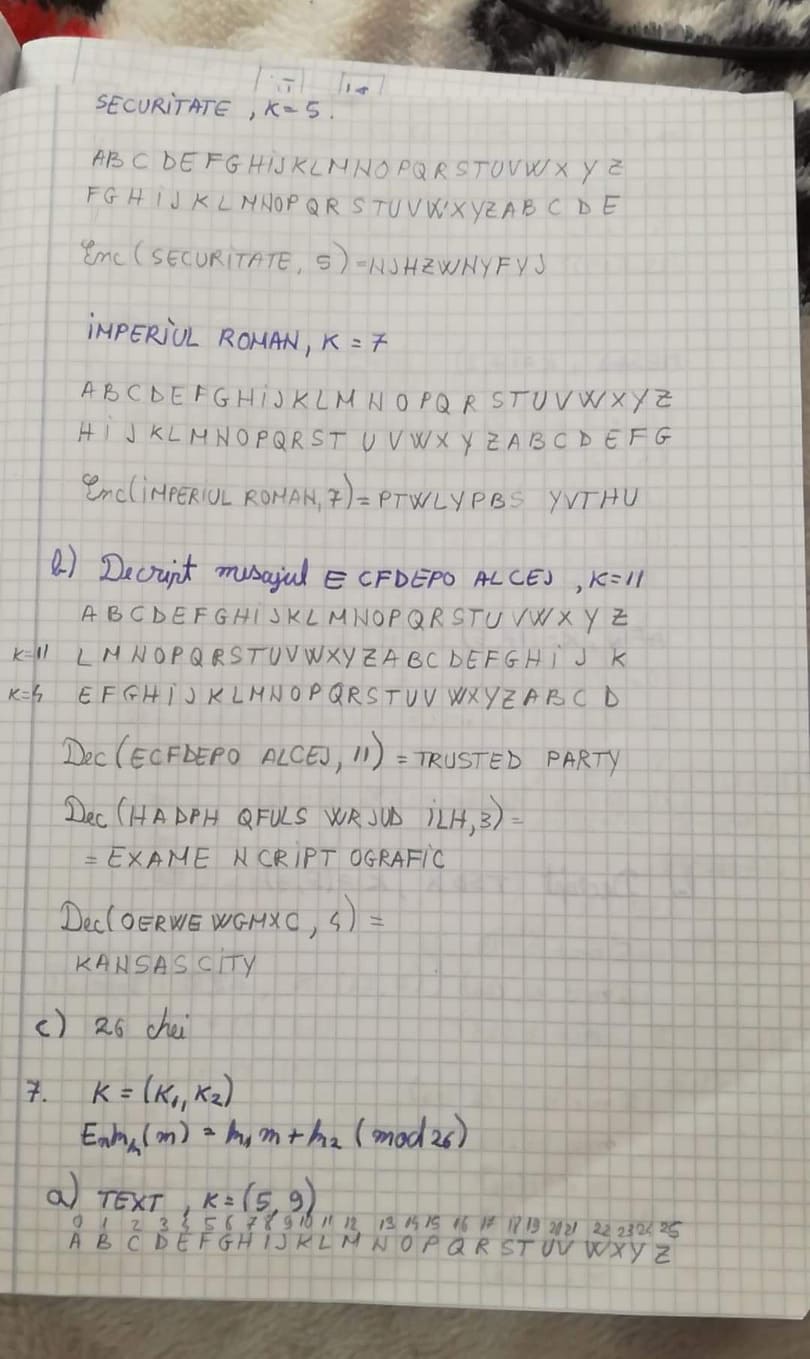 SECURITATE, K=5.
A B C D E F G H I J K L M N O P Q R S T U V W X Y Z
F G H I J K L M N O P Q R S T U V W X Y Z A B C D E
Enc(SECURITATE, 5)=NJHZWNYFYJ
IMPERIUL ROMAN, K=7
A B C D E F G H I J K L M N O P Q R S T U V W X Y Z
H I J K L M N O P Q R S T U V W X Y Z A B C D E F G
Enc(IMPERIUL ROMAN, 7)=PTWLYPBS YVTHU
b) Decript mesajul E CFDEPO ALCEJ, K=11
A B C D E F G H I J K L M N O P Q R S T U V W X Y Z
K=11 L M N O P Q R S T U V W X Y Z A B C D E F G H I J K
K=4 E F G H I J K L M N O P Q R S T U V W X Y Z A B C D
Dec(ECFDEPO ALCEJ, 11) = TRUSTED PARTY
Dec(HADPH QFULS WRJUD ILH, 3)=
= EXAME NCRIPT OGRAFIC
Dec(OERWE WGMXC, 4) =
KANSAS CITY
c) 26 chei
7. K = (K1, K2)
Enkk(m) = k1 m + k2 (mod 26)
a) TEXT, K=(5, 9)
0 1 2 3 4 5 6 7 8 9 10 11 12 13 14 15 16 17 18 19 20 21 22 23 24 25
A B C D E F G H I J K L M N O P Q R S T U V W X Y Z